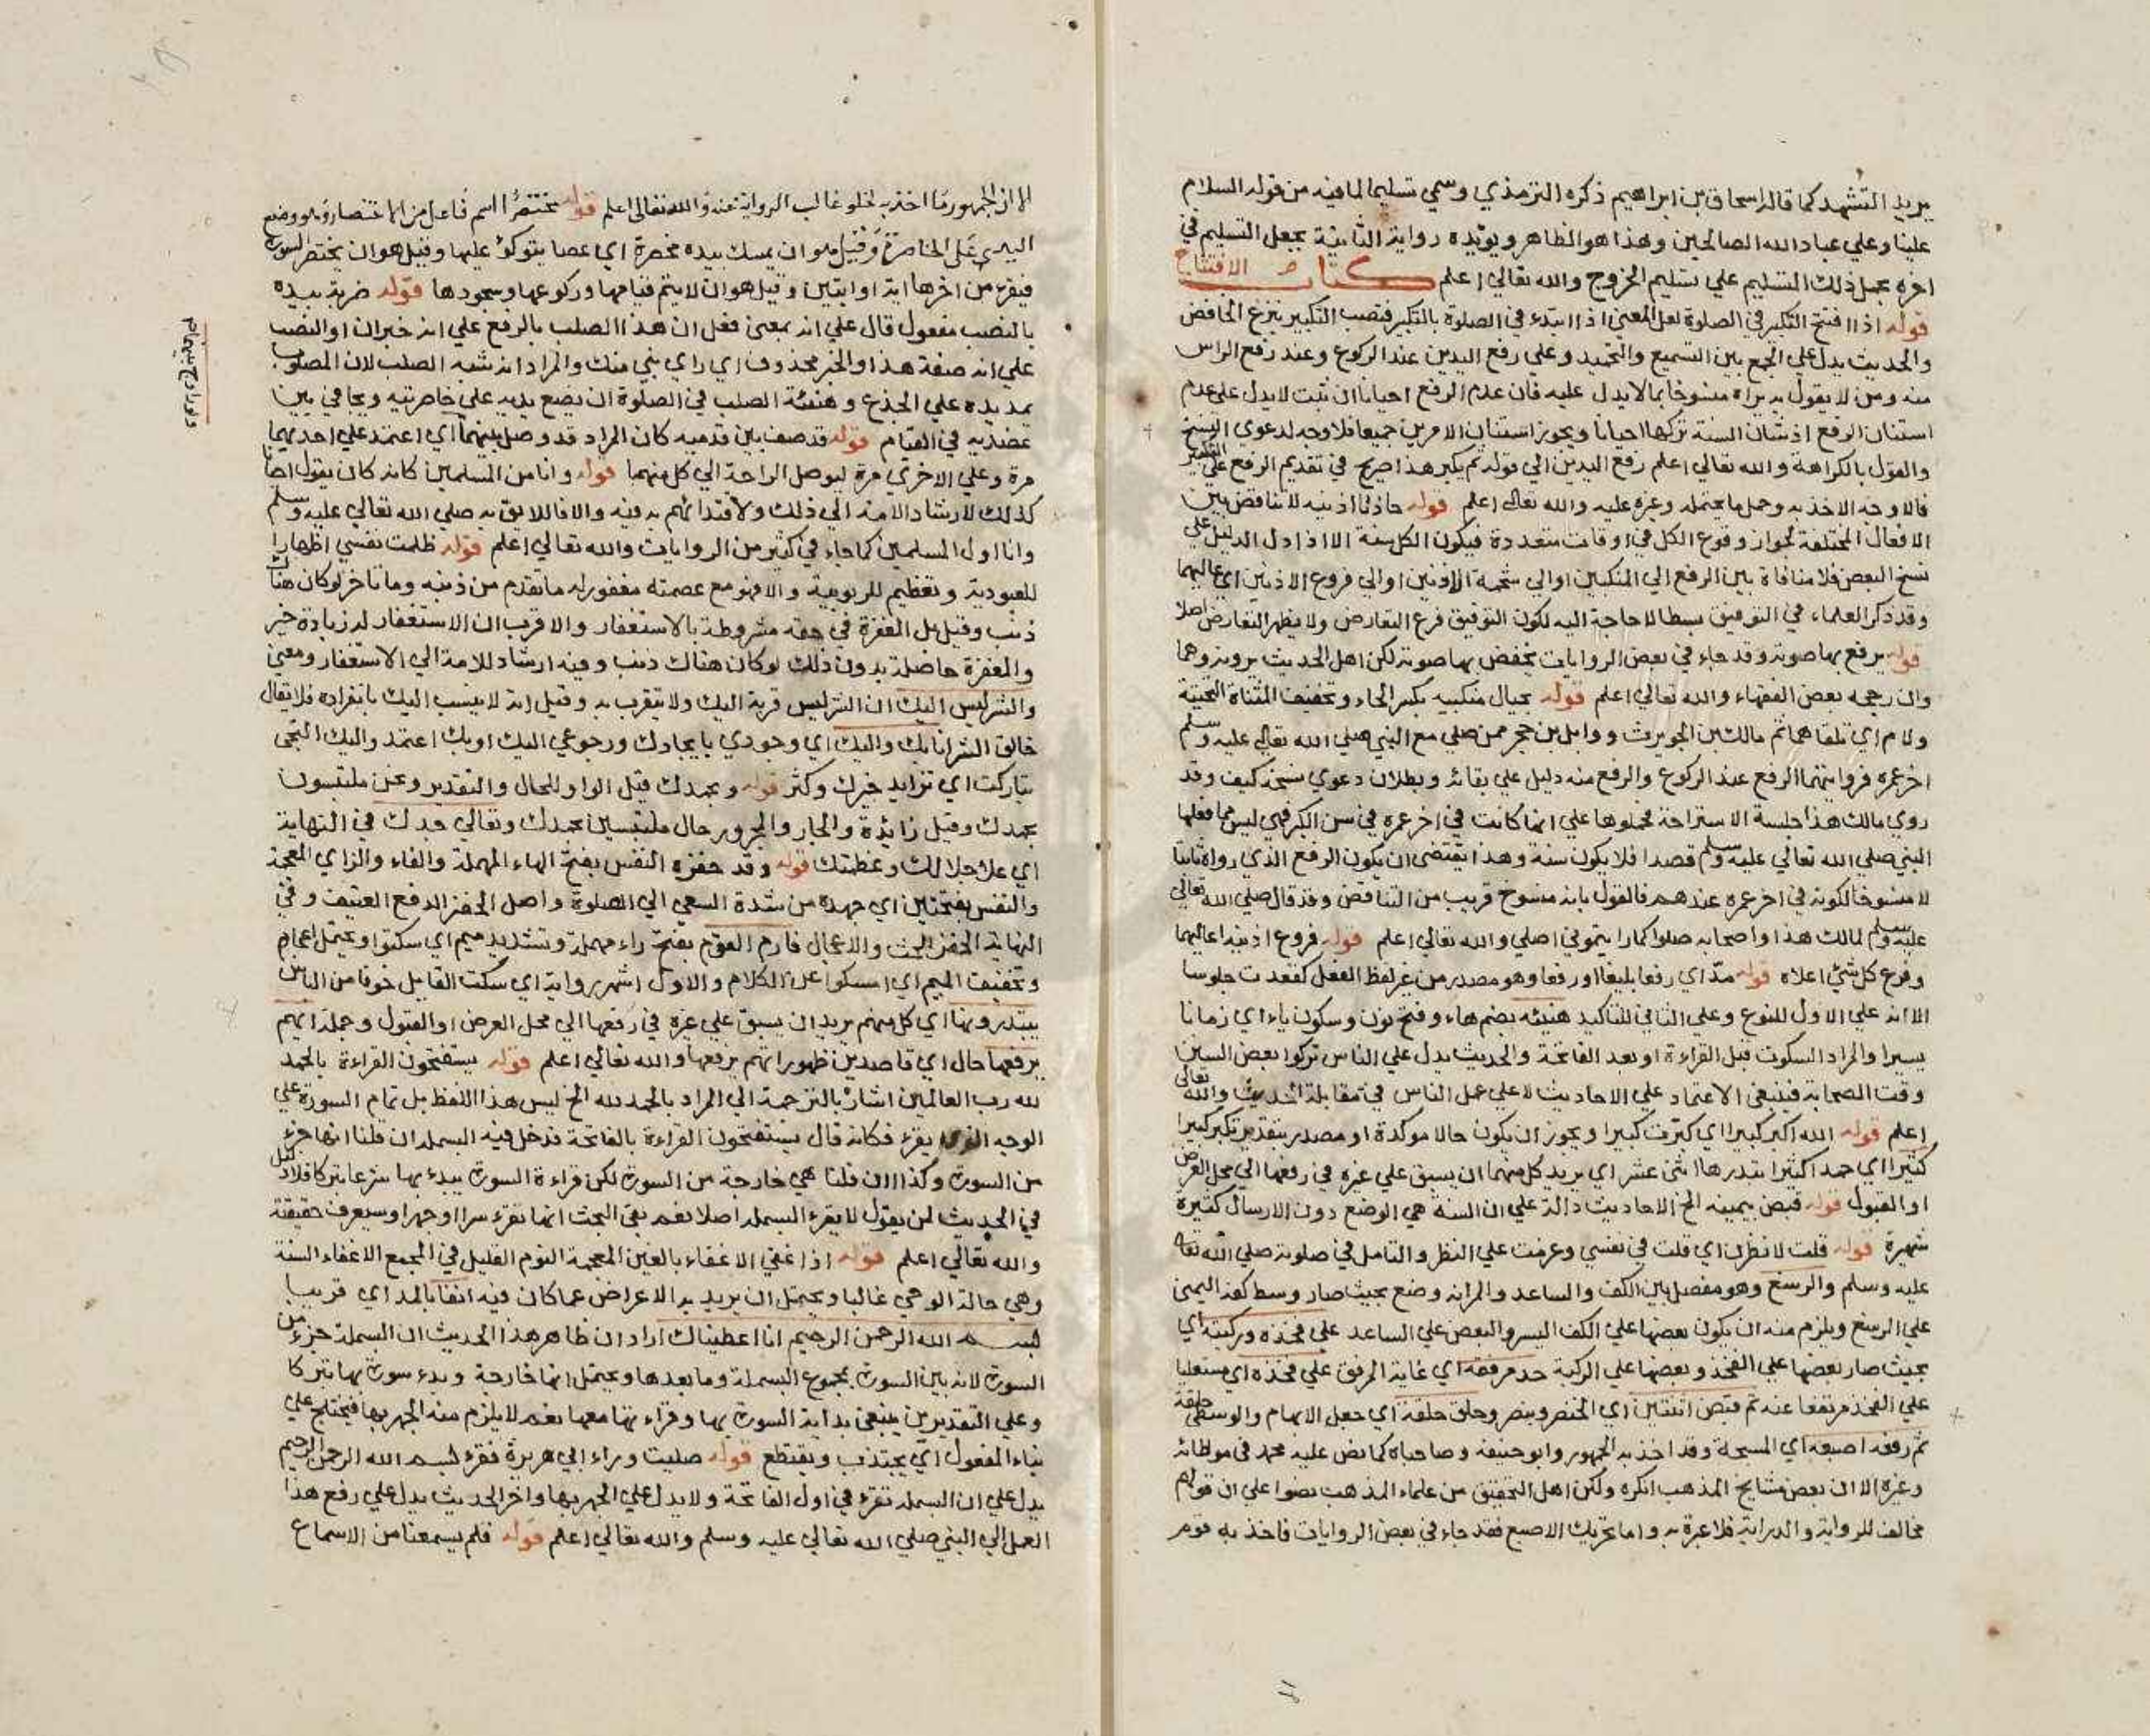 يريد التشهد كما قاله اسحاق بن ابراهيم ذكره الترمذي وسمي تسليما لما فيه من قوله السلام
علينا وعلي عباد الله الصالحين وهذا هو الظاهر ويؤيده رواية الثانية بجعل التسليم في
اخره بحمل ذلك التسليم علي تسليم الخروج والله تعالي اعلم كتاب الافتتاح
قوله اذا افتتح التكبير في الصلوة لعل المعني اذا ابتدء في الصلوة بالتكبير فنصب التكبير بنزع الخافض
والحديث يدل علي الجمع بين التسميع والتحميد وعلي رفع اليدين عند الركوع وعند رفع الراس
منه ومن لا يقول به يراه منسوخا بما لا يدل عليه فان عدم الرفع احيانا ان ثبت لا يدل علي عدم
استنان الرفع اذ شان السنة تركها احيانا ويجوز استنان الامرين جميعا فلا وجه لدعوي النسخ
والقول بالكراهة والله تعالي اعلم رفع اليدين الي قوله ثم يكبر هذا صريح في تقديم الرفع علي التكبير
فالاوجه الاخذ به وحمل ما يحتمله وغيره عليه والله تعالي اعلم قوله حاذتا اذنيه لا تناقض بين
الافعال المختلفة لجواز وقوع الكل في اوقات متعددة فيكون الكل سنة الا اذا دل الدليل علي
نسخ البعض فلا منافاة بين الرفع الي المنكبين او الي شحمة الاذنين او الي فروع الاذنين اي اعاليهما
وقد ذكر العلماء في التوفيق بسطا لا حاجة اليه لكون التوفيق فرع التعارض ولا يظهر التعارض اصلا
قوله يرفع بها صوته وقد جاء في بعض الروايات يخفض بها صوته لكن اهل الحديث يرونه وهما
وان رجحه بعض الفقهاء والله تعالي اعلم قوله بحيال منكبيه بكسر الحاء وتخفيف المثناة التحتية
ولام اي تلقاهما ثم مالك بن الحويرث ووايل بن حجر ممن صلي مع النبي صلي الله تعالي عليه وسلم
اخر عمره فروايتهما الرفع عند الركوع والرفع منه دليل علي بقائه وبطلان دعوي نسخه كيف وقد
روي مالك هذا جلسة الاستراحة فحملوها علي انها كانت في اخر عمره في سن الكبر فهي ليس مما فعلها
النبي صلي الله تعالي عليه وسلم قصدا فلا يكون سنة وهذا يقتضي ان يكون الرفع الذي رواه ثابتا
لا منسوخا لكونه في اخر عمره عندهم فالقول بانه منسوخ قريب من التناقض وقد قال صلي الله تعالي
عليه وسلم لمالك هذا واصحابه صلوا كما رايتموني اصلي والله تعالي اعلم قوله فروع اذنيه اعاليهما
وفرع كل شئ اعلاه قوله مدّا اي رفعا بليغا او رفعا وهو مصدر من غير لفظ الفعل كقعدت جلوسا
الا انه علي الاول للنوع وعلي الثاني للتاكيد هنيئه بضم هاء وفتح نون وسكون ياء اي زمانا
يسيرا والمراد السكوت قبل القراءة او بعد الفاتحة والحديث يدل علي الناس تركوا بعض السنن
وقت الصحابة فينبغي الاعتماد علي الاحاديث لا علي عمل الناس في مقابلة الحديث والله تعالي
اعلم قوله الله اكبر كبيرا اي كبرت كبيرا ويجوز ان يكون حالا موكدة او مصدر بتقدير تكبير كبيرا
كثيرا اي حمدا كثيرا ابتدرها اثنى عشر اي يريد كل منهما ان يسبق علي غيره في رفعها الي محل العرض
او القبول قوله قبض بيمينه الخ الاحاديث دالة علي ان السنة هي الوضع دون الارسال كثيرة
شهيرة قوله قلت لانظرن اي قلت في نفسي وعزمت علي النظر والتامل في صلوته صلي الله تعالي
عليه وسلم والرسغ وهو مفصل بين الكف والساعد والمراد انه وضع بحيث صار وسط كفه اليمنى
علي الرسغ ويلزم منه ان يكون بعضها علي الكف اليسر والبعض علي الساعد علي فخذه وركبته اي
بحيث صار بعضها علي الفخذ وبعضها علي الركبة حد مرفقه اي غاية المرفق علي فخذه اي مستعليا
علي الفخذ مرتفعا عنه ثم قبض اثنتين اي الخنصر وبنصر وحلق حلقة اي جعل الابهام والوسطي حلقة
ثم رفعه اصبعه اي المسبحة وقد اخذ به الجمهور وابو حنيفة وصاحباه كما نص عليه محمد في موطائه
وغيره الا ان بعض مشايخ المذهب انكره ولكن اهل التحقيق من علماء المذهب نصوا علي ان قولهم
مخالف للرواية والدراية فلا عبرة به واما تحريك الاصبع فقد جاء في بعض الروايات فاخذ به قوم
الا ان الجمهور ما اخذ به لخلو غالب الرواية عنه والله تعالي اعلم قوله مختصرا اسم فاعل من الاختصار وهو وضع
اليد علي الخاصرة وقيل هو ان يمسك بيده مخصرة اي عصا يتوكؤ عليها وقيل هو ان يختصر السورة
فيقرء من اخرها اية او ايتين وقيل هو ان لا يتم قيامها وركوعها وسجودها قوله ضربة بيده
بالنصب مفعول قال علي انه بمعني فعل ان هذا الصلب بالرفع علي انه خبر ان او النصب
علي انه صفة هذا والخبر محذوف اي راي بني منك والمراد انه شبه الصلب لان المصلوب
يمد يده علي الجذع وهيئة الصلب في الصلوة ان يضع يديه علي خاصرتيه ويجافي بين
عضديه في القيام قوله قد صف بين قدميه كان المراد قد وصل بينهما اي اعتمد علي احديهما
مرة وعلي الاخري مرة ليوصل الراحة الي كل منهما قوله وانا من المسلمين كانه كان يقول احيانا
كذلك لارشاد الامة الي ذلك ولاقتدائهم به فيه والا فاللائق به صلي الله تعالي عليه وسلم
وانا اول المسلمين كما جاء في كثير من الروايات والله تعالي اعلم قوله ظلمت نفسي اظهارا
للعبودية وتعظيم للربوبية والا فهو مع عصمته مغفور له ما تقدم من ذنبه وما تاخر لو كان هناك
ذنب وقيل بل المغفرة في حقه مشروطة بالاستغفار والاقرب ان الاستغفار له زيادة خير
والمغفرة حاصلة بدون ذلك لو كان هناك ذنب وفيه ارشاد للامة الي الاستغفار ومعني
والشر ليس اليك ان الشر ليس قربة اليك ولا يتقرب به وقيل انه لا ينسب اليك بانفراده فلا يقال
خالق الشر انا بك واليك اي وجودي بايجادك ورجوعي اليك او بك اعتمد واليك التجى
تباركت اي تزايد خيرك وكثر قوله وبحمدك قيل الواو للحال والتقدير ونحن ملتبسون
بحمدك وقيل زائدة والجار والمجرور حال ملتبسين بحمدك وتعالي جدك في النهاية
اي علا جلالك وعظمتك قوله وقد حفزه النفس بفتح الهاء المهملة والفاء والزاي المعجمة
والنفس بفتحتين اي جهده من شدة السعي الي الصلوة واصل الحفز الدفع العنيف وفي
النهاية الحفز الحث والاعجال فارم القوم بفتح راء مهملة وتشديد ميم اي سكتوا ويحتمل اعجام
وتخفيف الميم اي امسكوا عن الكلام والاول اشهر رواية اي سكت القايل خوفا من الناس
يبتدرونها اي كل منهم يريد ان يسبق علي غيره في رفعها الي محل العرض او القبول وجملة ايهم
يرفعها حال اي قاصدين ظهور انهم يرفعها والله تعالي اعلم قوله يستفتحون القراءة بالحمد
لله رب العالمين اشار بالترجمة الي المراد بالحمد لله الخ ليس هذا اللفظ بل تمام السورة علي
الوجه الذي يقرء فكانه قال يستفتحون القراءة بالفاتحة فدخل فيه البسملة ان قلنا انها جزء
من السورة وكذا ان قلنا هي خارجة من السورة لكن قراءة السورة يبدء بها شرعا تبركا فلا دليل
في الحديث لمن يقول لا يقرء البسملة اصلا نعم بقي البحث انها تقرء سرا او جهرا وسيعرف حقيقته
والله تعالي اعلم قوله اذا غفي الاغفاء بالغين المعجمة النوم القليل في المجمع الاغفاء السنة
وهي حالة الوحي غالبا ويحتمل ان يريد به الاعراض عما كان فيه انفا بالمد اي قريبا
بسم الله الرحمن الرحيم انا اعطيناك اراد ان ظاهر هذا الحديث ان البسملة جزء من
السورة لانه بين السورة بمجموع البسملة وما بعدها ويحتمل انها خارجة وبدء سورة بها تبركا
وعلي التقديرين ينبغي بداية السورة بها وقراءتها معها نعم لا يلزم منه الجهر بها فيختلج علي
بناء المفعول اي يجتذب ويقتطع قوله صليت وراء ابي هريرة فقرء بسم الله الرحمن الرحيم
يدل علي ان البسملة تقرء في اول الفاتحة ولا يدل علي الجهر بها واخر الحديث يدل علي رفع هذا
العمل الي النبي صلي الله تعالي عليه وسلم والله تعالي اعلم قوله فلم يسمعنا من الاسماع